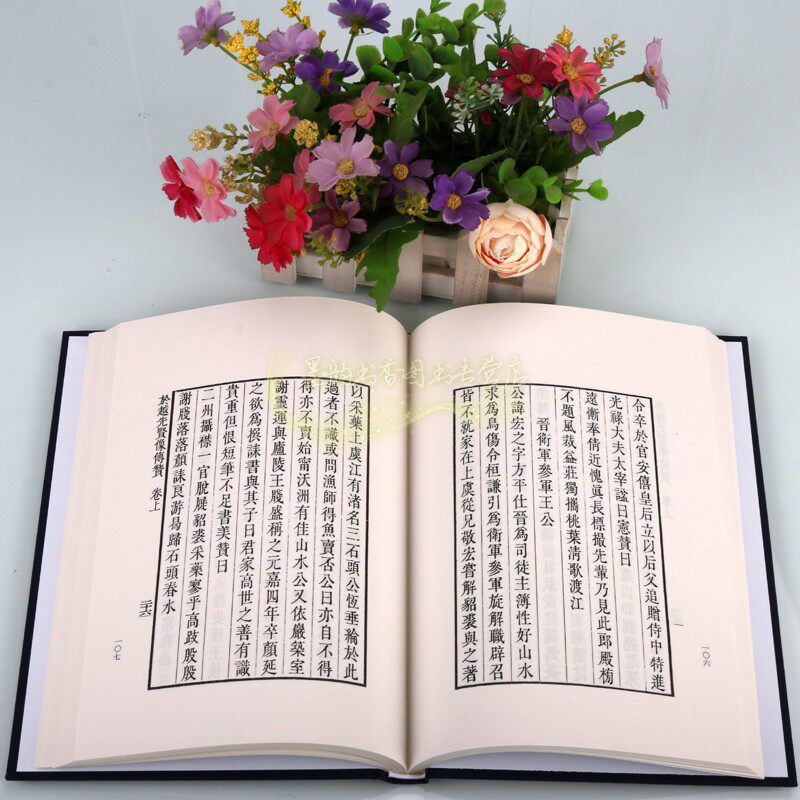 令卒於官安僖皇后立以后父追贈侍中特進
光祿大夫太宰諡曰憲贊曰
遠漸奉倩近愧眞長標撮先輩乃見此郎殿栭
不題風裁益莊獨攜桃葉淸歌渡江
晉衛軍參軍王公
公諱宏之字方平仕晉爲司徒主簿性好山水
求爲烏傷令桓謙引爲衛軍參軍旋解職辟召
皆不就家在上虞從兄敬宏嘗解貂裘與之著
一〇六
以采藥上虞江有渚名三石頭公恆垂綸於此
過者不識或問漁師得魚賣否公曰亦自不得
得亦不賣始甯沃洲有佳山水公又依巖築室
謝靈運與廬陵王牋盛稱之元嘉四年卒顏延
之欲爲撰誄書與其子曰君家高世之善有識
貴重但恨短筆不足書美贊曰
二州攝襟一官脫屣貂裘采藥寥乎高跂殷殷
謝牋落落顏誄艮游曷歸石頭春水
於越先賢像傳贊 卷上
二十六
一〇七
墨韵书香图书专营店